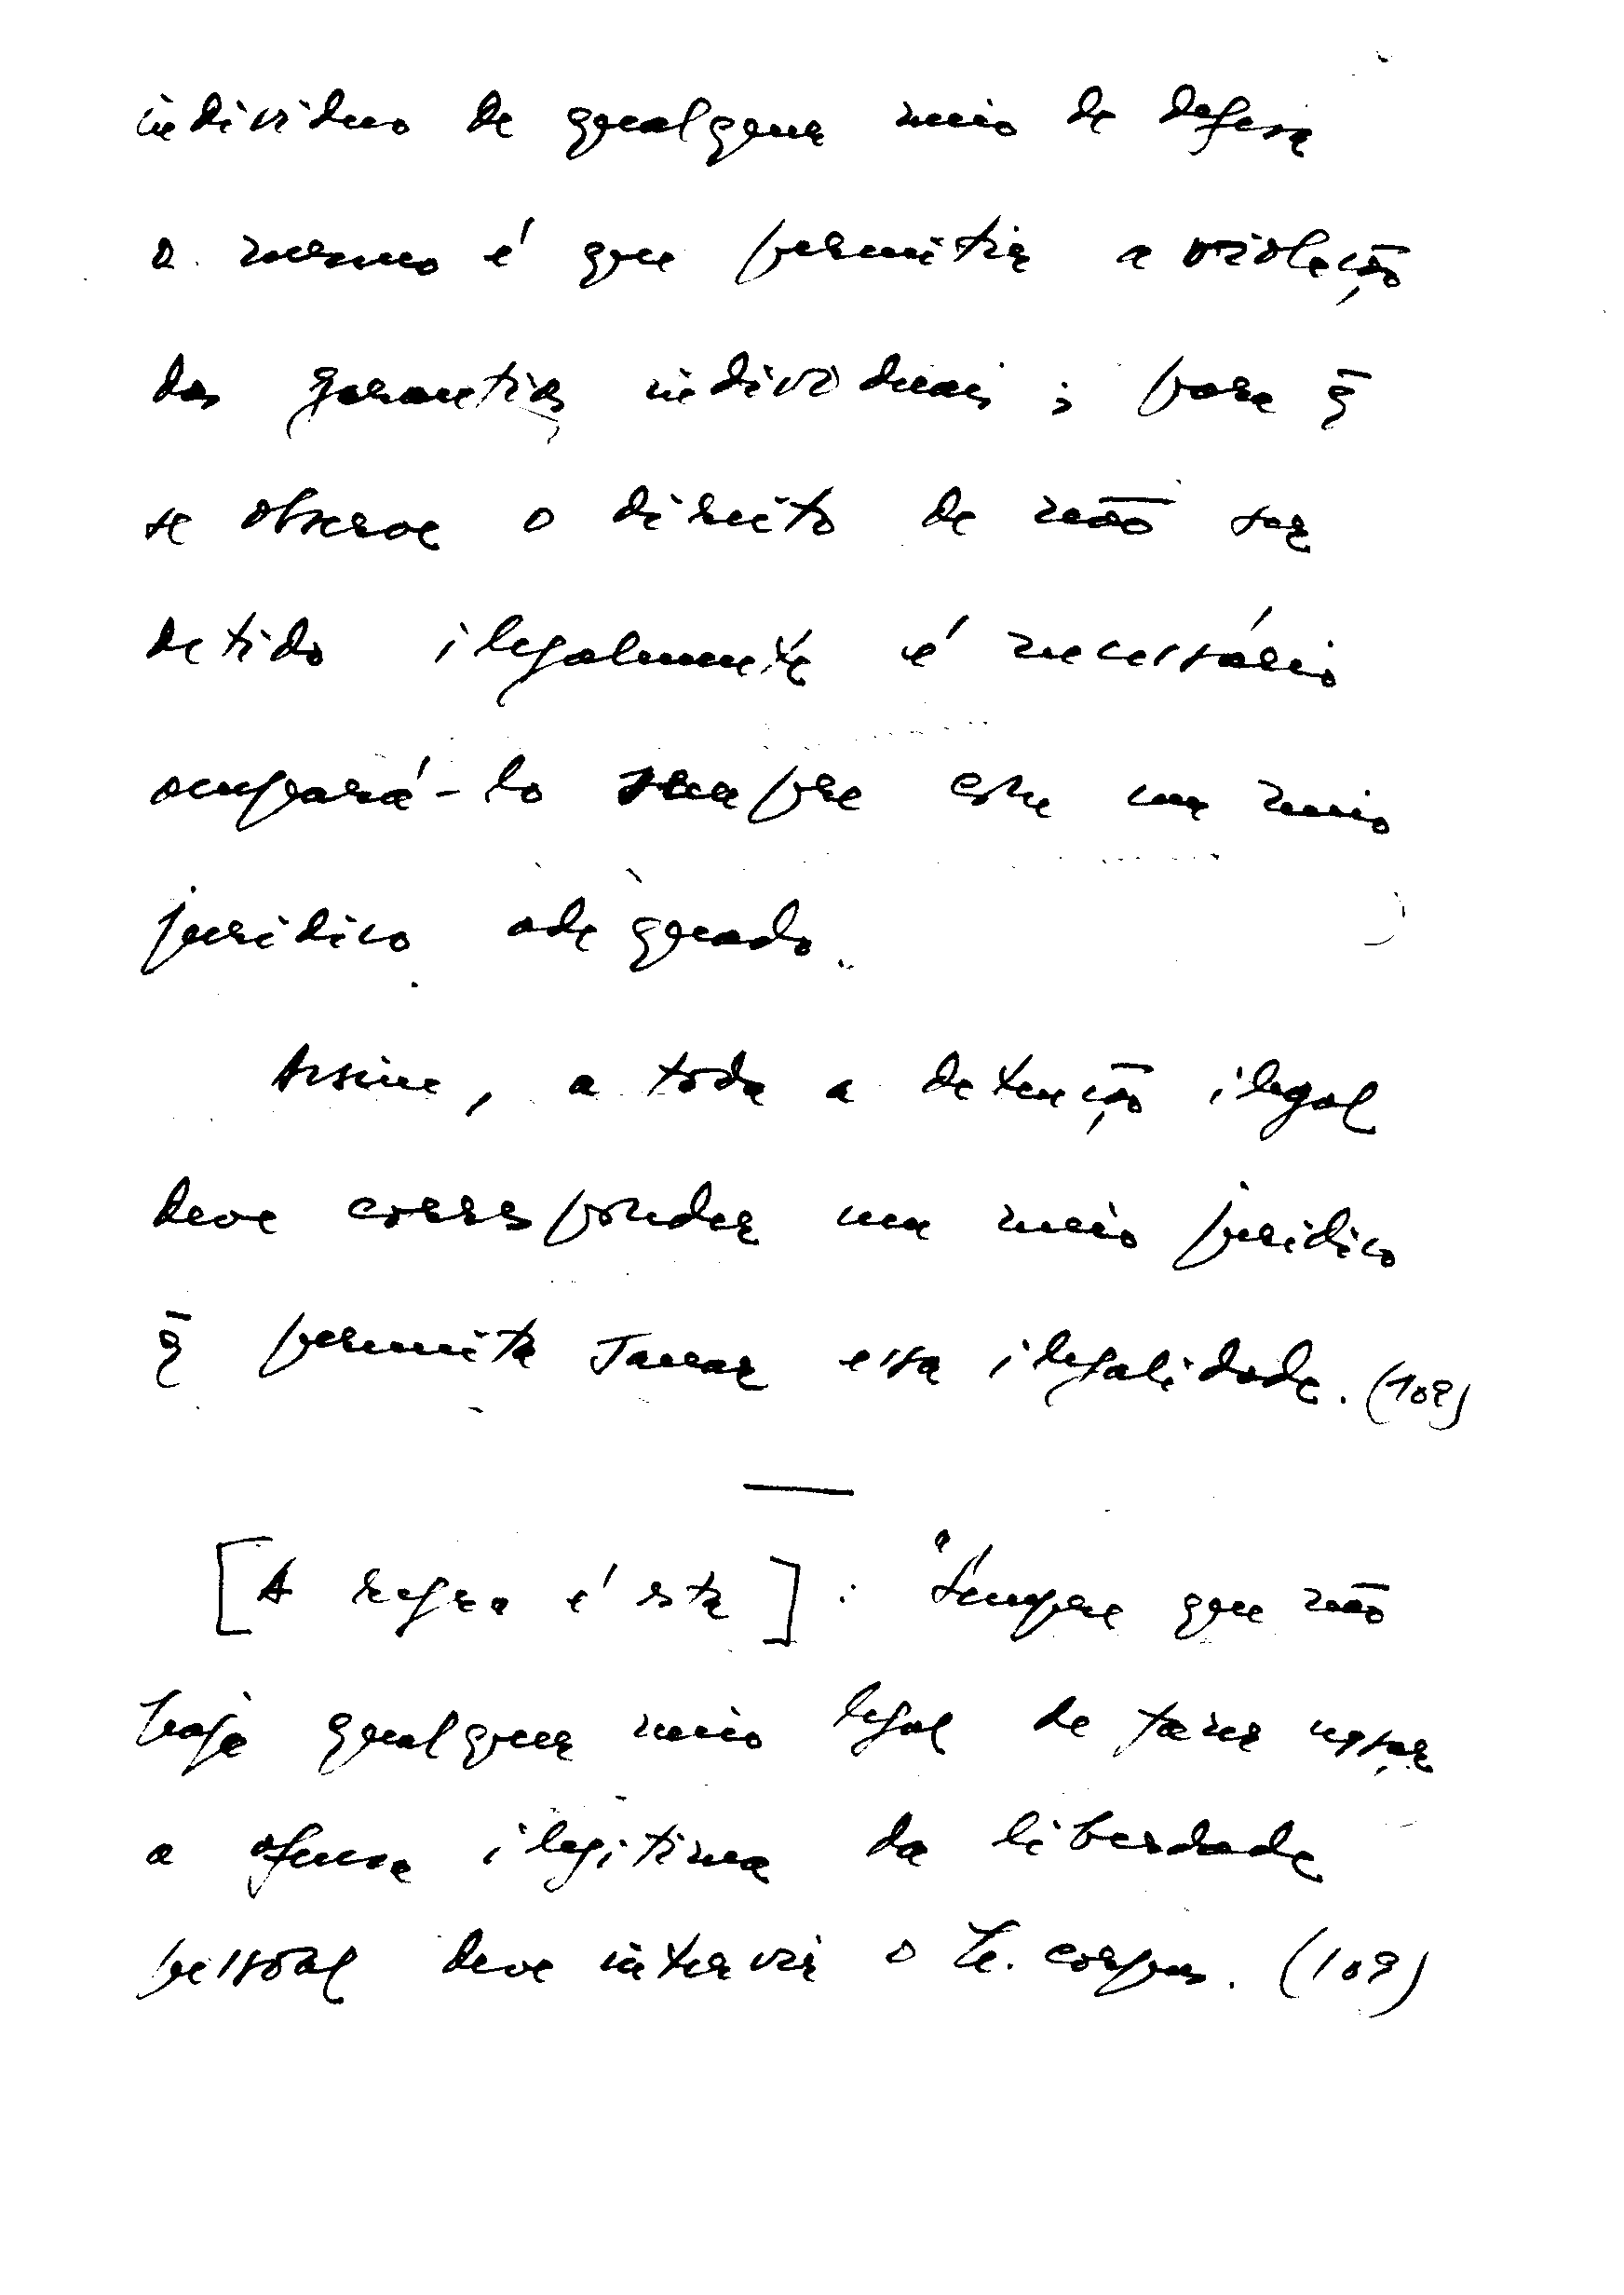 individuo de qualquer meio de defesa
o mesmo é que permitir a violação
das garantias individuais; para q̄
se observe o direito de não ser
detido ilegalmente é necessário
ampará-lo sempre com um meio
juridico adequado.
Assim, a toda a detenção ilegal
deve corresponder um meio juridico
q̄ permita sanar essa ilegalidade. (109)
[A regra é esta]: "Sempre que não
haja qualquer meio legal de fazer cessar
a ofensa ilegitima da liberdade
pessoal deve intervir o h. corpus. (109)